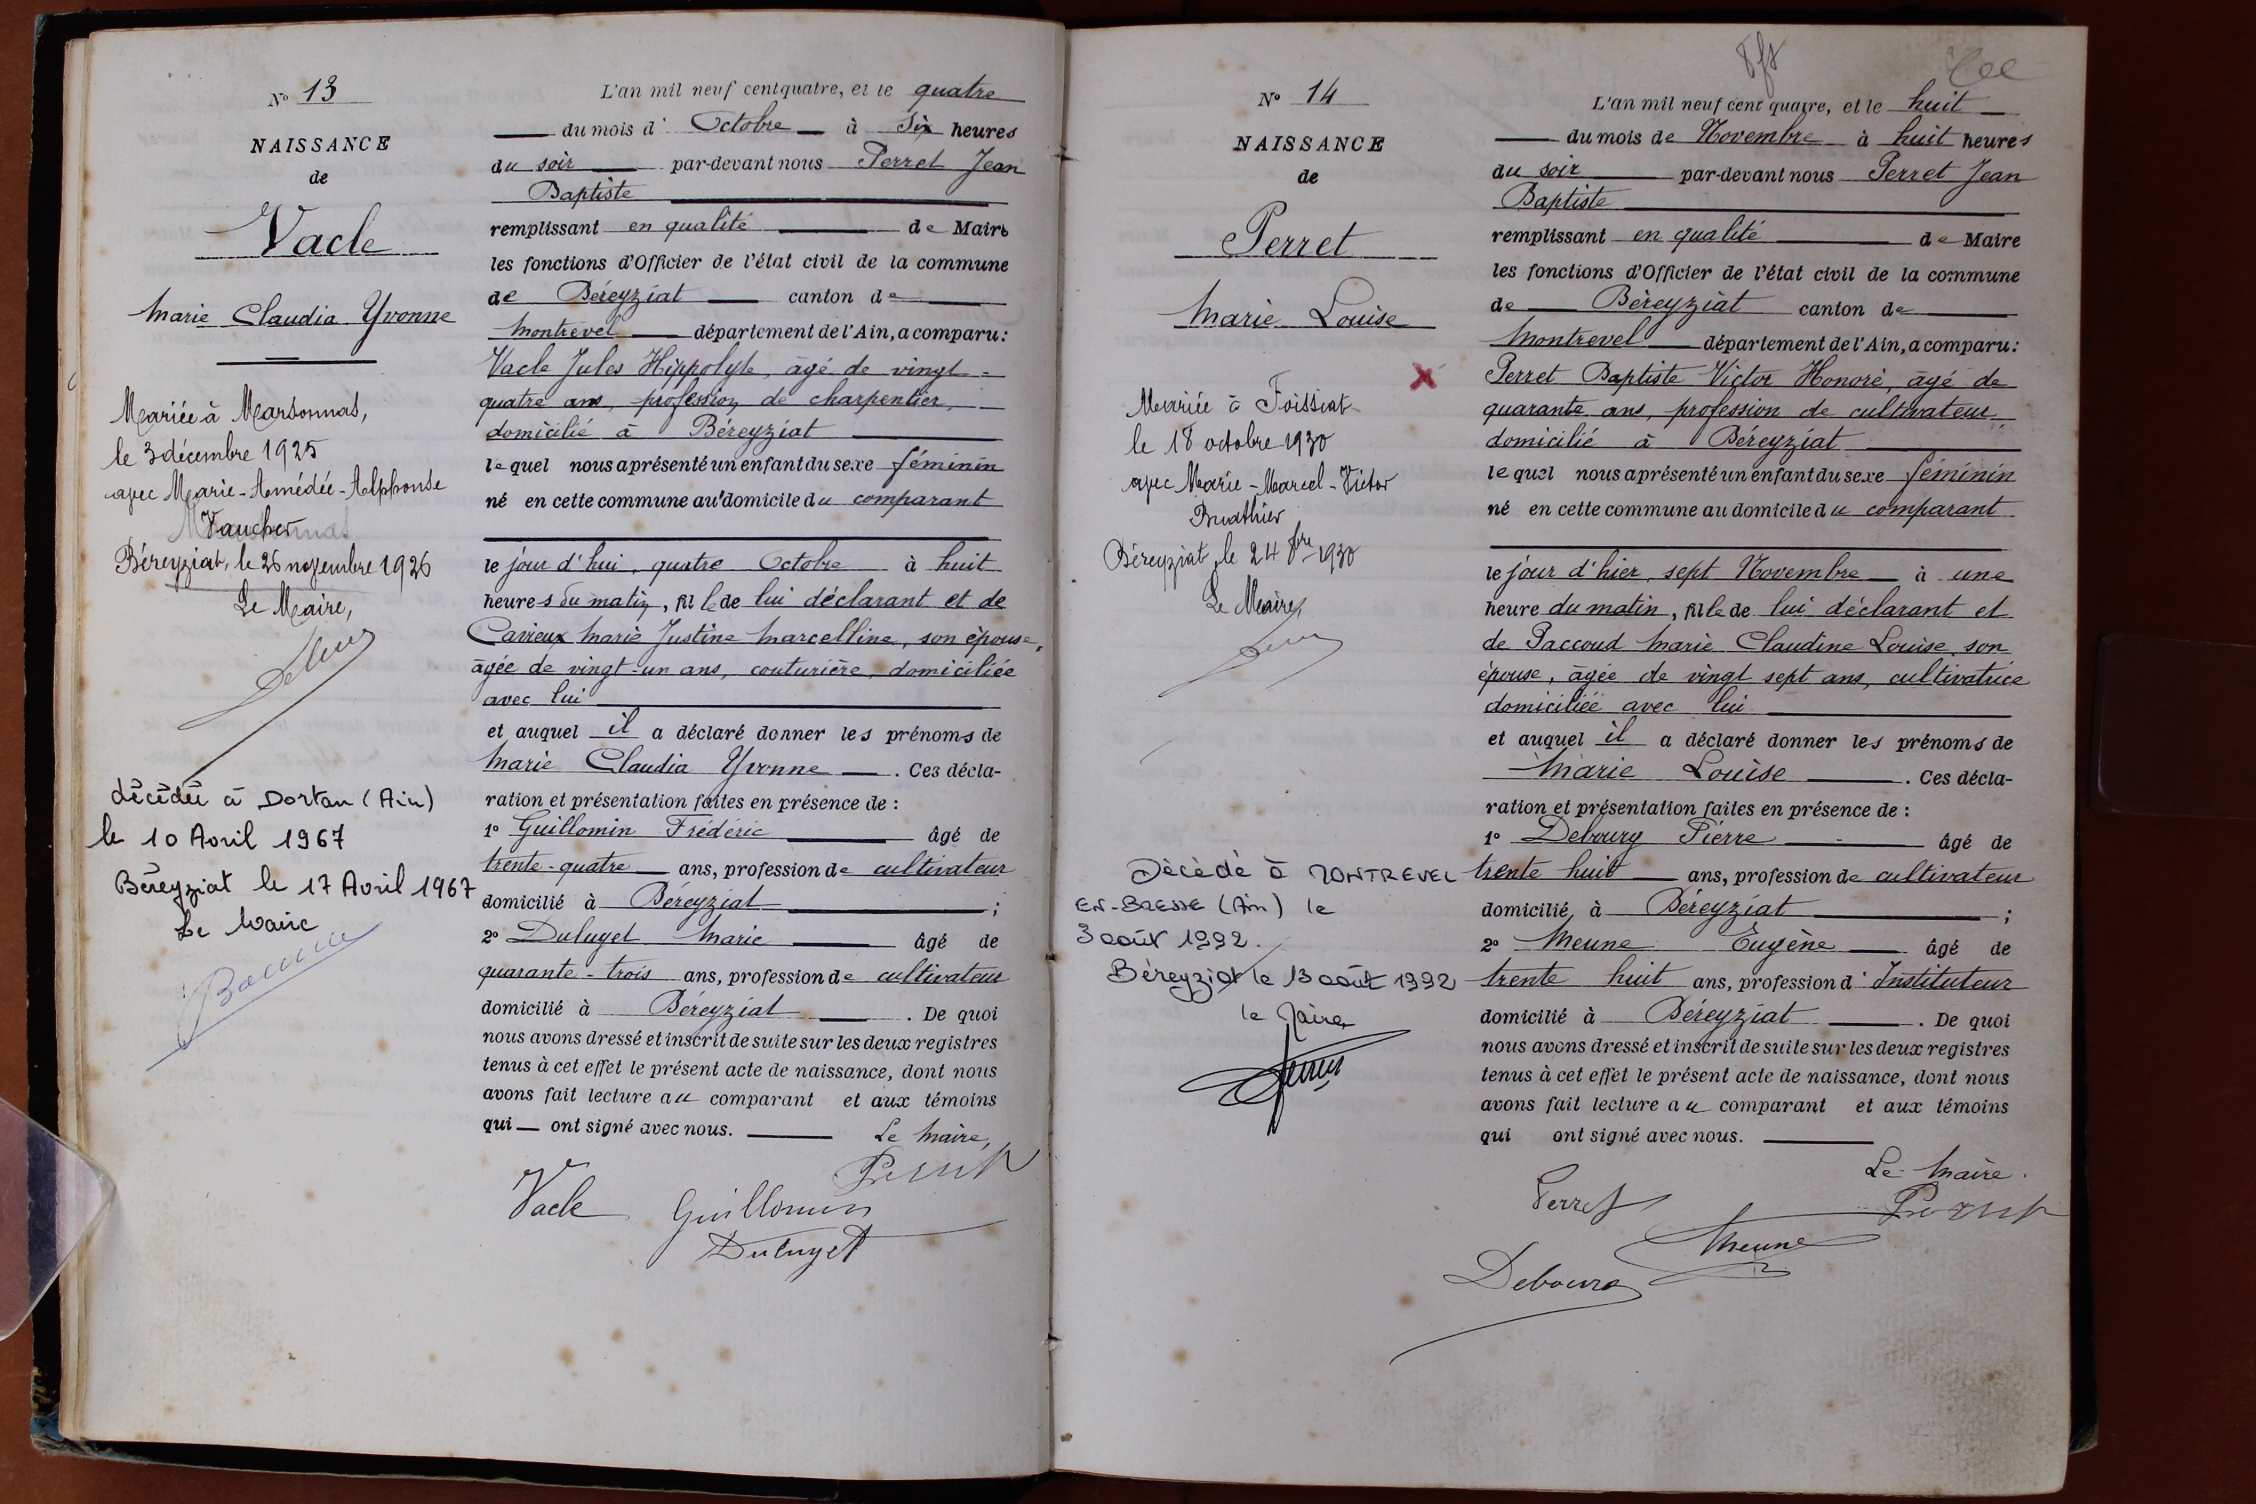 N° 13
NAISSANCE
de
Vacle
Marie Claudia Yvonne
Mariée à Marsonnas,
le 3 décembre 1925
avec Marie-Amédée-Alphonse
Vaucher
Béreyziat, le 26 novembre 1926
Le Maire,
décédée à Dortan (Ain)
le 10 Avril 1967
Béreyziat le 17 Avril 1967
Le Maire
L'an mil neuf cent quatre, et le quatre
du mois d' Octobre à six heures
du soir par-devant nous Perret Jean
Baptiste
remplissant en qualité de Maire
les fonctions d'Officier de l'état civil de la commune
de Béreyziat canton de
Montrevel département de l'Ain, a comparu:
Vacle Jules Hippolyte, âgé de vingt-
quatre ans, profession de charpentier,
domicilié à Béreyziat
lequel nous a présenté un enfant du sexe féminin
né en cette commune au domicile du comparant
le jour d'hui, quatre Octobre à huit
heures du matin, fille de lui déclarant et de
Marie Justine Marcelline, son épouse,
âgée de vingt-un ans, couturière, domiciliée
avec lui
et auquel il a déclaré donner les prénoms de
Marie Claudia Yvonne. Ces décla-
ration et présentation faites en présence de :
1° Guillomin Frédéric âgé de
trente-quatre ans, profession de cultivateur
domicilié à Béreyziat ;
2° Duluyet Marie âgé de
quarante-trois ans, profession de cultivateur
domicilié à Béreyziat. De quoi
nous avons dressé et inscrit de suite sur les deux registres
tenus à cet effet le présent acte de naissance, dont nous
avons fait lecture au comparant et aux témoins
qui ont signé avec nous. Le Maire,
Perret
Vacle Guillomin
Duluyet
N° 14
NAISSANCE
de
Perret
Marie Louise
Mariée à Foissiat
le 18 octobre 1930
avec Marie-Marcel-Victor
Buathier
Béreyziat, le 24 8bre 1930
Le Maire,
Décédé à MONTREVEL
EN-BRESSE (Ain) le
3 août 1992.
Béreyziat le 13 août 1992
le Maire
L'an mil neuf cent quatre, et le huit
du mois de Novembre à huit heures
du soir par-devant nous Perret Jean
Baptiste
remplissant en qualité de Maire
les fonctions d'Officier de l'état civil de la commune
de Béreyziat canton de
Montrevel département de l'Ain, a comparu:
Perret Baptiste Victor Honoré, âgé de
quarante ans, profession de cultivateur,
domicilié à Béreyziat
lequel nous a présenté un enfant du sexe féminin
né en cette commune au domicile du comparant
le jour d'hier, sept Novembre à une
heure du matin, fille de lui déclarant et
de Paccoud Marie Claudine Louise, son
épouse, âgée de vingt sept ans, cultivatrice
domiciliée avec lui
et auquel il a déclaré donner les prénoms de
Marie Louise. Ces décla-
ration et présentation faites en présence de :
1° Deboury Pierre âgé de
trente huit ans, profession de cultivateur
domicilié à Béreyziat ;
2° Meune Eugène âgé de
trente huit ans, profession d' Instituteur
domicilié à Béreyziat. De quoi
nous avons dressé et inscrit de suite sur les deux registres
tenus à cet effet le présent acte de naissance, dont nous
avons fait lecture au comparant et aux témoins
qui ont signé avec nous.
Le Maire.
Perret Perret
Meune
Deboury